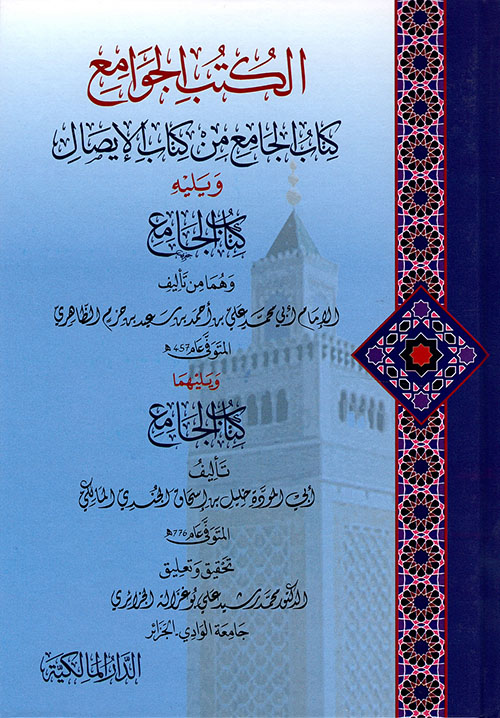 الكُتُب الجَوَامِع
كِتَابُ الجَامِعِ مِنْ كِتَابِ الإِيصَالِ
وَيَلِيْهِ
كِتَابُ الجَامِعِ
وَهُمَا مِن تَأْلِيفِ
الإمام أبي محمد علي بن أحمد بن سعيد بن حزم الظاهري
المتوفَّى عام 457هـ
وَيَليْهِمَا
كِتَابُ الجَامِعِ
تَأليفُ
أبي المودة خليل بن إسحاق الجُندي المالكي
المتوفَّى عام 776هـ
تحقيق وتعليق
الدكتور محمد رشيد علي بوغزالة الجزائري
جامعة الوادي-الجزائر
الدَّارُ المَالِكِيَّة